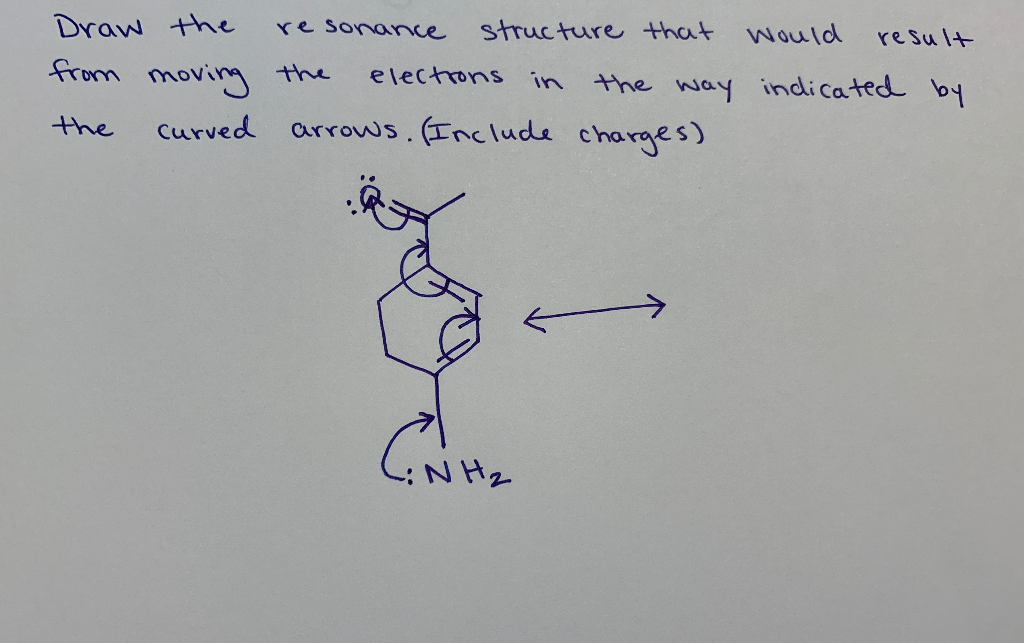 Draw the resonance structure that would result
from moving the electrons in the way indicated by
the curved arrows. (Include charges)
:Ö
:NH2